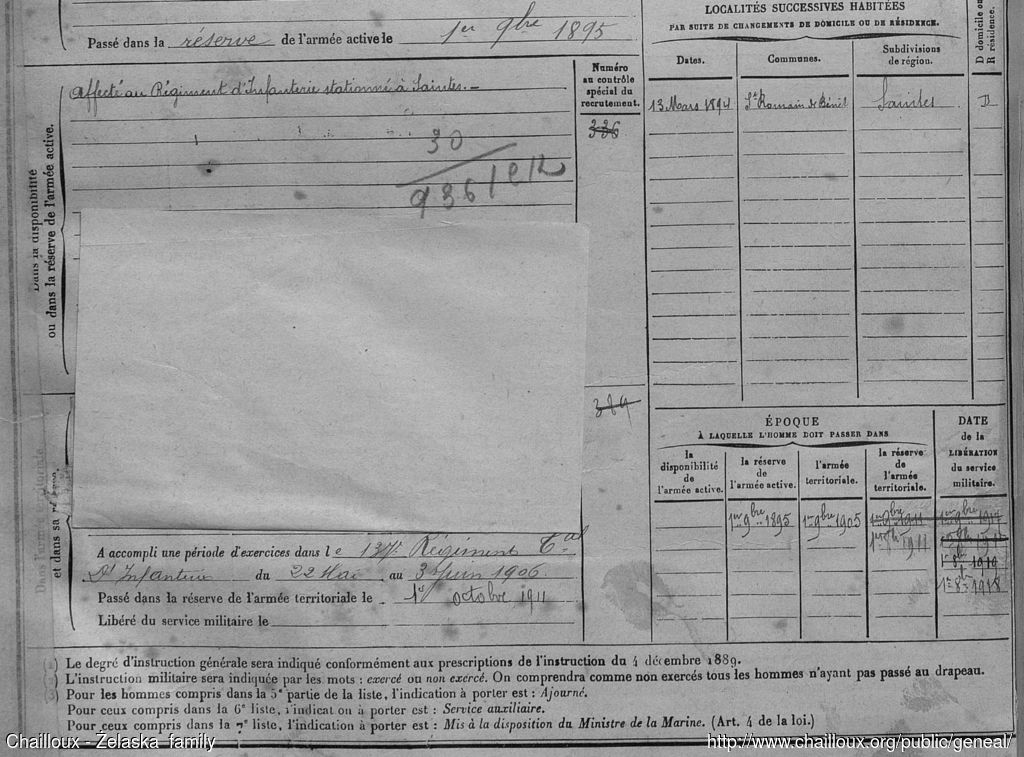 Passé dans la réserve de l'armée active le 1er 9bre 1895
Affecté au Régiment d'Infanterie stationné à Saintes.
Dans la disponibilité
ou dans la réserve de l'armée active.
30
936
Numéro
au contrôle
spécial du
recrutement.
336
389
LOCALITÉS SUCCESSIVES HABITÉES
PAR SUITE DE CHANGEMENTS DE DOMICILE OU DE RÉSIDENCE.
Dates.
Communes.
Subdivisions
de région.
D domicile ou
R résidence.
13 Mars 1894 St Romain de Bénet Saintes D
ÉPOQUE
À LAQUELLE L'HOMME DOIT PASSER DANS
la
disponibilité
de
l'armée active.
la réserve
de
l'armée active.
l'armée
territoriale.
la réserve
de
l'armée
territoriale.
DATE
de la
LIBÉRATION
du service
militaire.
1er 9bre 1895 1er 9bre 1905 1er 9bre 1911
1er 8bre 1911
1er 8bre 1918
et dans sa
A accompli une période d'exercices dans le 137e Régiment Tal
d'Infanterie du 22 Mai au 3 Juin 1906.
Passé dans la réserve de l'armée territoriale le 1er octobre 1911
Libéré du service militaire le
Le degré d'instruction générale sera indiqué conformément aux prescriptions de l'instruction du 4 décembre 1889.
L'instruction militaire sera indiquée par les mots : exercé ou non exercé. On comprendra comme non exercés tous les hommes n'ayant pas passé au drapeau.
Pour les hommes compris dans la 5e partie de la liste, l'indication à porter est : Ajourné.
Pour ceux compris dans la 6e liste, l'indication à porter est : Service auxiliaire.
Pour ceux compris dans la 7e liste, l'indication à porter est : Mis à la disposition du Ministre de la Marine. (Art. 4 de la loi.)
Chailloux - Żelaska family
http://www.chailloux.org/public/geneal/